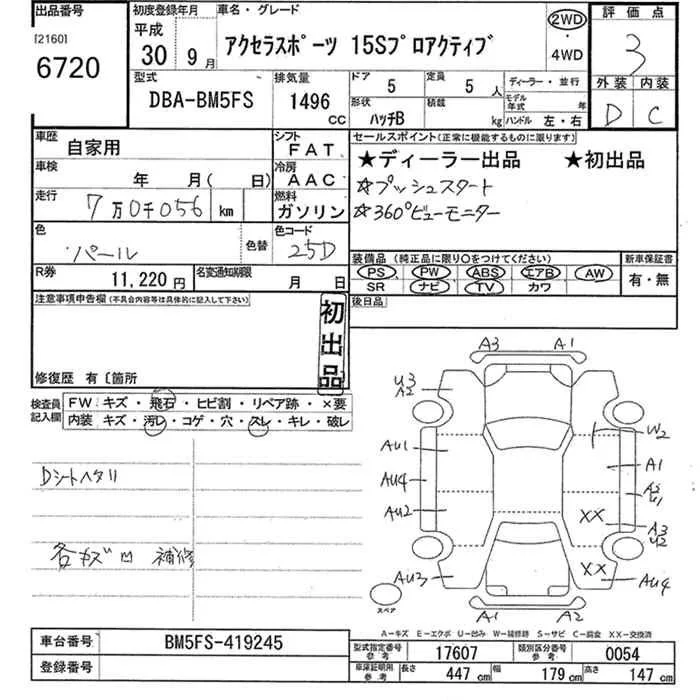 出品番号
[2160]
6720
初度登録年月
平成
30 9月
車名・グレード
アクセラスポーツ 15Sプロアクティブ
2WD
・
4WD
評価点
3
外装 内装
D C
型式
DBA-BM5FS
排気量
1496
cc
ドア
5
定員
5人
形状
ハッチB
積載
kg
ディーラー・並行
モデル年式 年
ハンドル 左・右
車歴
自家用
シフト
FAT
車検
年 月( 日)
冷房
AAC
走行
7万0千056 km
燃料
ガソリン
色
パール
色替
色コード
25D
R券
11,220円
名変通知期限
月 日
セールスポイント(正常に機能するものに限ります)
★ディーラー出品 ★初出品
☆プッシュスタート
☆360°ビューモニター
装備品 (純正品に限り○をつけてください)
PS PW ABS エアB AW
SR ナビ TV カワ
新車保証書
有・無
後日品
注意事項申告欄(不具合内容等は具体的に記入して下さい)
初出品
修復歴 有〔箇所
検査員記入欄
FW キズ・飛石・ヒビ割・リペア跡・×要
内装 キズ・汚レ・コゲ・穴・スレ・キレ・破レ
Dシートヘタリ
各キズ凹 補修
A3 A1
U3
A2
W2
AU1
A1
AU4
A2
U1
AU2
XX
A3
U2
AU3
XX
AU4
スペア
A1 A2
A-キズ E-エクボ U-凹み W-補修跡 S-サビ C-腐食 XX-交換済
車台番号
BM5FS-419245
登録番号
型式指定番号
参考
17607
類別区分番号
参考
0054
車庫証明用
参考
長さ
447 cm
幅
179 cm
高さ
147 cm